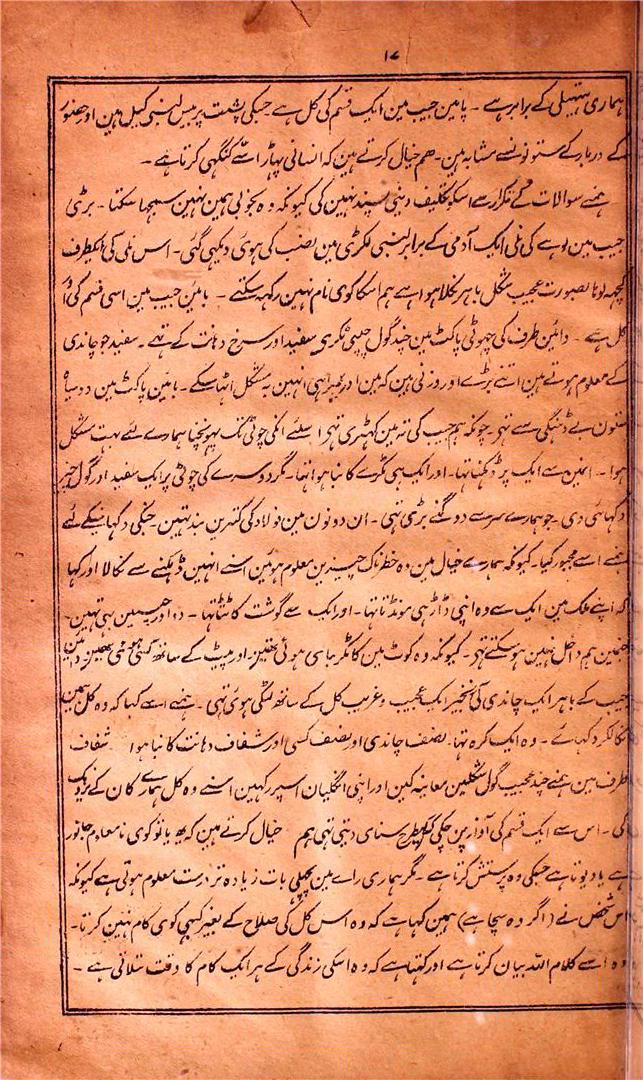 ۱۷
ہماری ہتھیلی کے برابر ہے ۔ بامین جیب مین ایک قسم کی کل ہے جسکی پشت پر بیس لنبی کیل ہین اور حضور
کے دربار کے ستونونسے مشابہ ہین ۔ ہم خیال کرتے ہین کہ انسانی پہاڑ اسسے کنگہی کرتا ہے ۔
ہمنے سوالات کے تکرار سے اسکو تکلیف دینی پسند نہین کی کیونکہ وہ بخوبی ہمین نہین سمجہا سکتا ۔ بڑی
جیب مین لوہے کی نلی ایک آدمی کے برابر لنبی لکڑی مین نصب کی ہوئی دیکہی گئی ۔ اس نلی کی ایکطرف
کچہہ لوہا بصورت عجیب شکل باہر نکلا ہوا ہے ہم اسکا کوی نام نہین رکہہ سکتے ۔ بامین جیب مین اسی قسم کی اور
کل ہے ۔ دائین طرف کی چہوٹی پاکٹ مین چند گول چپٹی ٹکڑی سفید اور سرخ دہات کے تہے ۔ سفید جو چاندی
کے معلوم ہوتے ہین اتنے بڑے اور وزنی ہین کہ مین اور میرا ہمراہی انہین بہ مشکل اٹہا سکے ۔ بامین پاکٹ مین دو سیاہ
ستون بے ڈہنگی سے تہے ۔ چونکہ ہم جیب کی تہ مین کہڑی تہی اسلئے انکی چوٹی تک پہونچنا ہمارے لئے بہت مشکل
ہوا ۔ انمین سے ایک پر ڈہکنا تہا ۔ اور ایک ہی ٹکڑے کا بنا ہوا تہا ۔ مگر دوسرے کی چوٹی پر ایک سفید اور گول چیز
دکہائی دی ۔ جو ہمارے سر سے دوگنے بڑی تہی ۔ ان دونون مین فولاد کی کلین بند تہین جنکی دکہانیکے لئے
ہمنے اسے مجبور کیا ۔ کیونکہ ہمارے خیال مین وہ خطرناک چیزین معلوم ہوئین اسنے انہین ڈہکنے سے نکالا اور کہا
کہ اپنے ملک مین ایک سے وہ اپنی ڈاڑہی مونڈتا تہا ۔ اور ایک سے گوشت کاٹتا تہا ۔ دو اور جیبین بہی تہین ۔
جنمین ہم داخل نہین ہو سکتے تہی ۔ کیونکہ وہ کوٹ مین کاٹ کر بنای ہوئی تہین ۔ اور پیٹ کے ساتہہ ہوئی تہین ۔ دائین
جیب کے باہر ایک چاندی کی زنجیر ایک عجیب و غریب کل کے ساتہہ لٹکی ہوئی تہی ۔ ہمنے اسے کہا کہ وہ کل ہمین
نکالکر دکہائے ۔ وہ ایک کرہ تہا ۔ نصف چاندی اور نصف کسی اور شفاف دہات کا بنا ہوا شفاف
طرف مین ہمنے چند عجیب گول شکلین معاینہ کین اور اپنی انگلیان اسپر رکہین اسنے وہ کل ہمارے کان کے نزدیک
کی ۔ اس سے ایک قسم کی آواز پن چکی کیطرح سنای دیتی تہی ہم خیال کرتے ہین کہ یہ یا تو کوی نامعلوم جانور
ہے یا دیوتا ہے جسکی وہ پرستش کرتا ہے ۔ مگر ہماری راے مین پچہلی بات زیادہ تر درست معلوم ہوتی ہے کیونکہ
اس شخص نے (اگر وہ سچا ہے) ہمین کہا ہے کہ وہ اس کل کی صلاح کے بغیر کبہی کوی کام نہین کرتا ۔
وہ اسے کلام اللہ بیان کرتا ہے اور کہتا ہے کہ وہ اسکی زندگی کے ہر ایک کام کا وقت بتلاتی ہے ۔